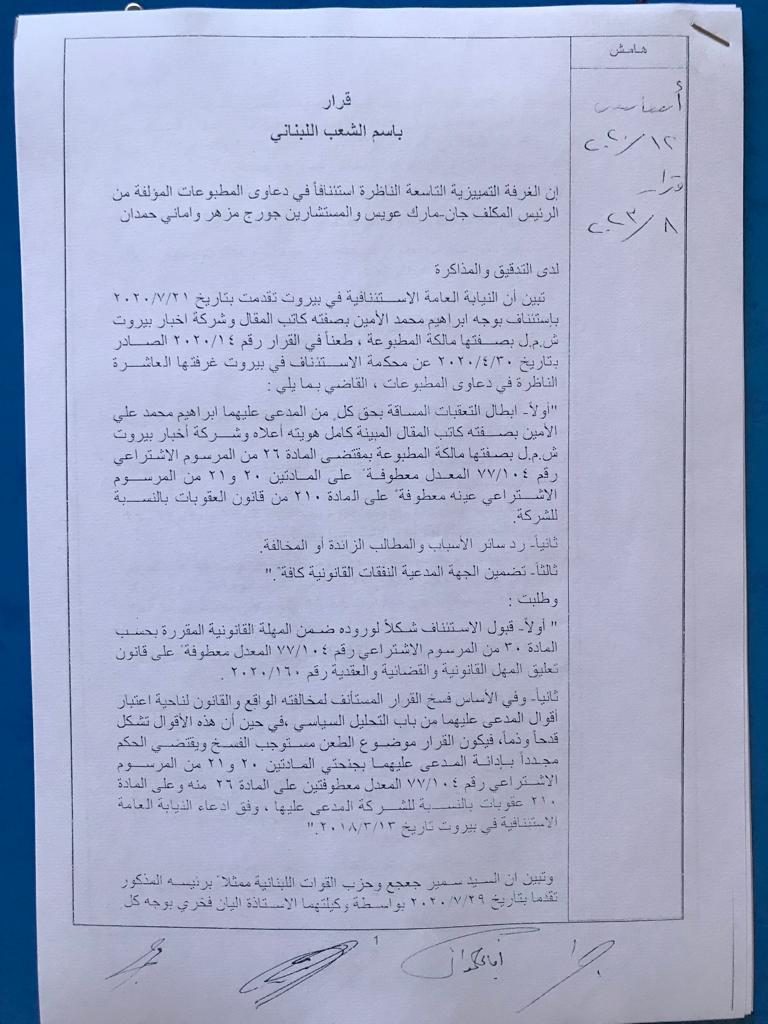 هامش
أساس
٢٠٢٠/١٢
قرار
٢٠٢٣/٨
قرار
باسم الشعب اللبناني
إن الغرفة التمييزية التاسعة الناظرة استئنافاً في دعاوى المطبوعات المؤلفة من
الرئيس المكلف جان-مارك عويس والمستشارين جورج مزهر واماني حمدان
لدى التدقيق والمذاكرة
تبين أن النيابة العامة الاستئنافية في بيروت تقدمت بتاريخ ٢٠٢٠/٧/٢١
بإستئناف بوجه ابراهيم محمد الأمين بصفته كاتب المقال وشركة اخبار بيروت
ش.م.ل بصفتها مالكة المطبوعة ، طعناً في القرار رقم ٢٠٢٠/١٤ الصادر
بتاريخ ٢٠٢٠/٤/٣٠ عن محكمة الاستئناف في بيروت غرفتها العاشرة
الناظرة في دعاوى المطبوعات ، القاضي بما يلي :
"أولاً- ابطال التعقبات المساقة بحق كل من المدعى عليهما ابراهيم محمد علي
الأمين بصفته كاتب المقال المبينة كامل هويته أعلاه وشركة أخبار بيروت
ش.م.ل بصفتها مالكة المطبوعة بمقتضى المادة ٢٦ من المرسوم الاشتراعي
رقم ٧٧/١٠٤ المعدل معطوفةً على المادتين ٢٠ و٢١ من المرسوم
الاشتراعي عينه معطوفةً على المادة ٢١٠ من قانون العقوبات بالنسبة
للشركة.
ثانياً- رد سائر الأسباب والمطالب الزائدة أو المخالفة.
ثالثاً- تضمين الجهة المدعية النفقات القانونية كافةً."
وطلبت :
" أولاً- قبول الاستئناف شكلاً لوروده ضمن المهلة القانونية المقررة بحسب
المادة ٣٠ من المرسوم الاشتراعي رقم ٧٧/١٠٤ المعدل معطوفةً على قانون
تعليق المهل القانونية والقضائية والعقدية رقم ٢٠٢٠/١٦٠ .
ثانياً- وفي الأساس فسخ القرار المستأنف لمخالفته الواقع والقانون لناحية اعتبار
أقوال المدعى عليهما من باب التحليل السياسي ،في حين أن هذه الأقوال تشكل
قدحاً وذماً، فيكون القرار موضوع الطعن مستوجب الفسخ ويقتضي الحكم
مجدداً بإدانة المدعى عليهما بجنحتي المادتين ٢٠ و٢١ من المرسوم
الاشتراعي رقم ٧٧/١٠٤ المعدل معطوفتين على المادة ٢٦ منه وعلى المادة
٢١٠ عقوبات بالنسبة للشركة المدعى عليها ، وفق ادعاء النيابة العامة
الاستئنافية في بيروت تاريخ ٢٠١٨/٣/١٣."
وتبين ان السيد سمير جعجع وحزب القوات اللبنانية ممثلاً برئيسه المذكور
تقدما بتاريخ ٢٠٢٠/٧/٢٩ بواسطة وكيلتهما الاستاذة اليان فخري بوجه كل
1